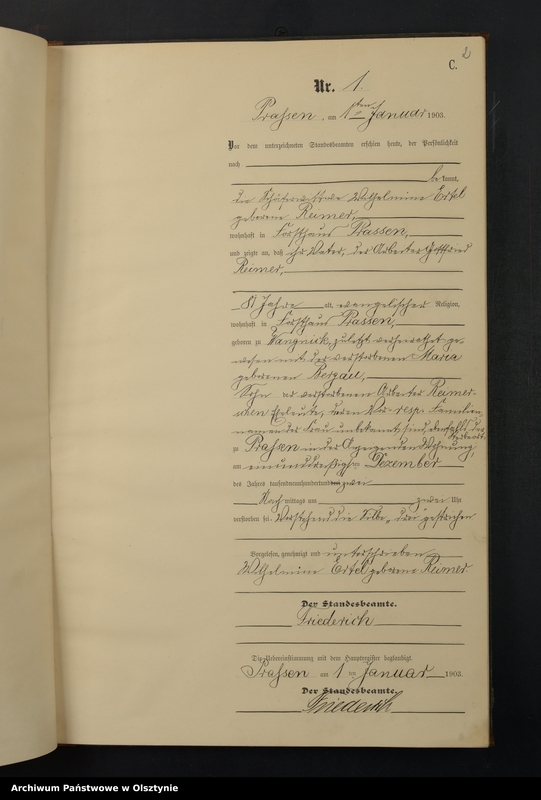 2
C.
Nr. 1.
Prassen, am 1ten Januar 1903.
Vor dem unterzeichneten Standesbeamten erschien heute, der Persönlichkeit
nach
be kannt,
die Wilhelmine Ertel
geborene Reimer,
wohnhaft in Forsthaus Prassen,
und zeigte an, daß ihr Vater, der Arbeiter Gottfried
Reimer,
81 Jahre alt, evangelischer Religion,
wohnhaft in Forsthaus Prassen,
geboren zu Wangnick, zuletzt verheirathet ge-
wesen mit der verstorbenen Maria
geborenen Bergau,
Sohn der verstorbenen Arbeiter Reimer-
schen Eheleute, deren Vor- resp. Familien
namen der Frau unbekannt sind,
zu Prassen in der Wohnung
am einunddreißigsten Dezember
des Jahres tausendneunhundert zwei
Nach mittags um zwei Uhr
verstorben sei. Vorstehend die Silbe „drei" gestrichen
Vorgelesen, genehmigt und unterschrieben
Wilhelmine Ertel geborene Reimer
Der Standesbeamte.
Friederich
Die Uebereinstimmung mit dem Hauptregister beglaubigt.
Prassen am 1 ten Januar 1903.
Der Standesbeamte.
Friederich
Archiwum Państwowe w Olsztynie